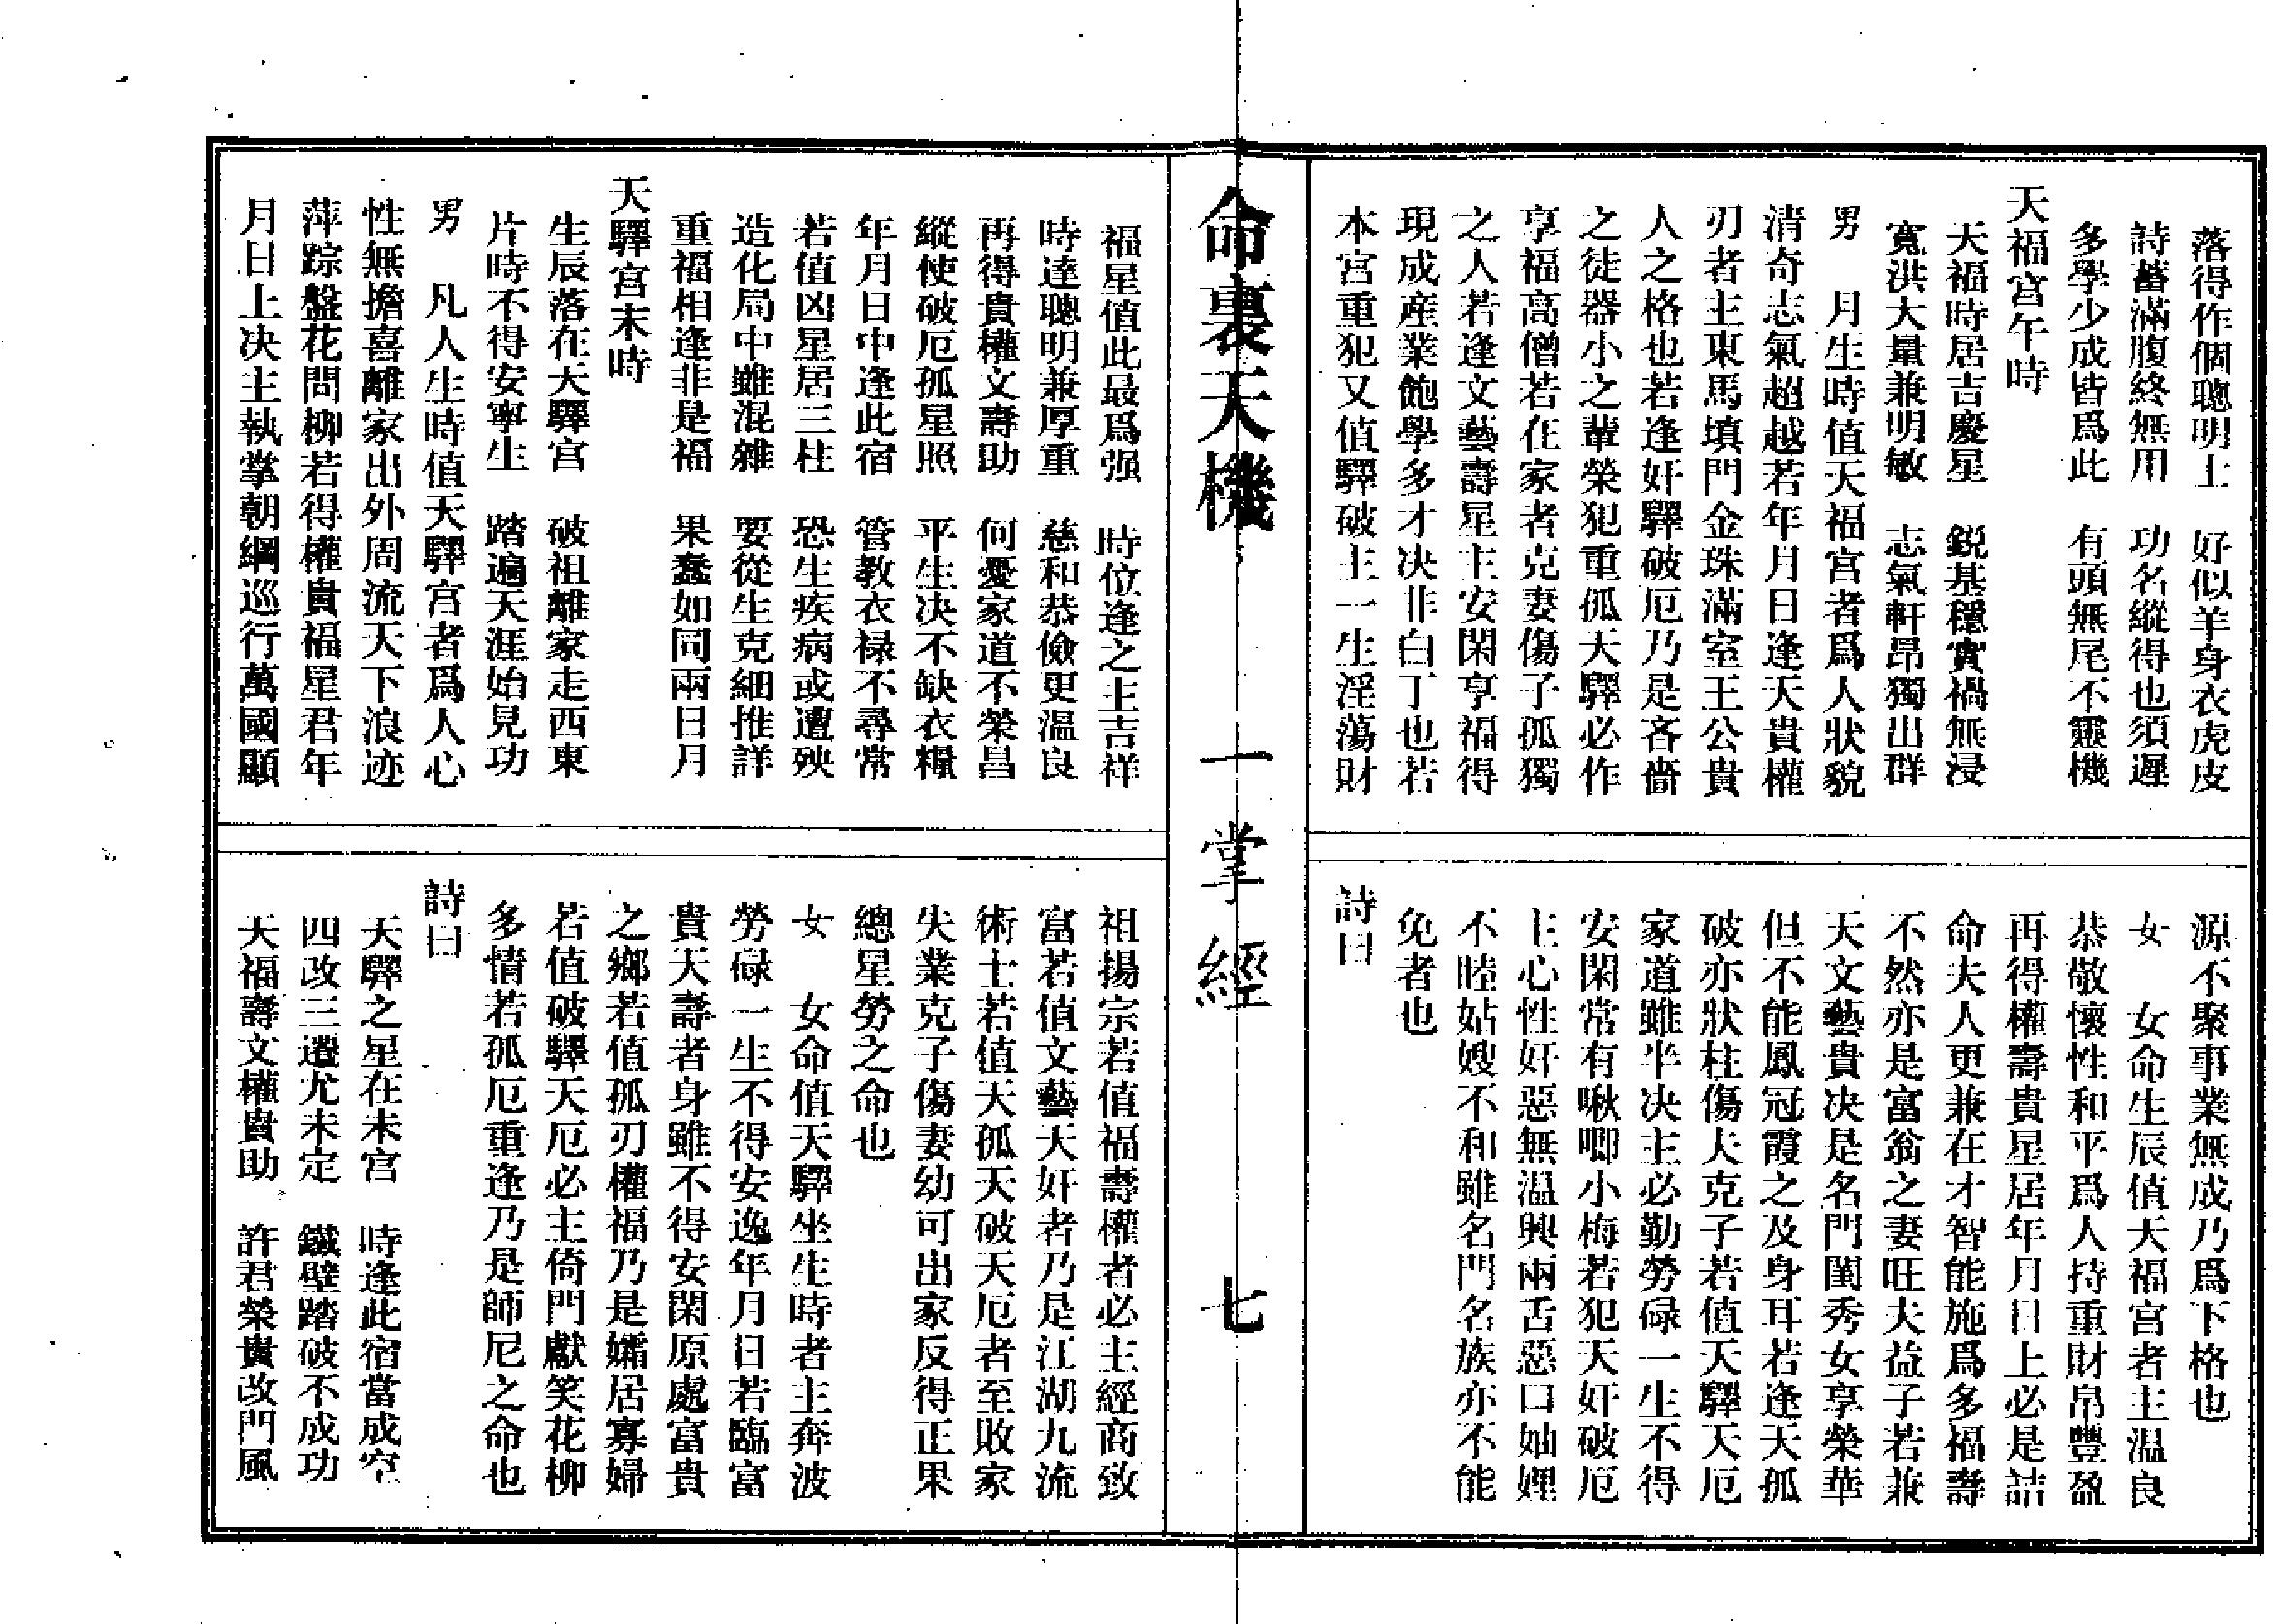 落得作個聰明士　好似羊身衣虎皮
詩蓄滿腹終無用　功名縱得也須遲
多學少成皆爲此　有頭無尾不靈機
天福宮午時
天福時居吉慶星　鋭基穩實禍無浸
寬洪大量兼明敏　志氣軒昂獨出群
男　月生時值天福宮者爲人狀貌
清奇志氣超越若年月日逢天貴權
刃者主東馬填門金珠滿室王公貴
人之格也若逢奸驛破厄乃是吝嗇
之徒器小之輩榮犯重孤天驛必作
亨福高僧若在家者克妻傷子孤獨
之人若逢文藝壽星主安閑亨福得
現成産業飽學多才决非白丁也若
本宮重犯又值驛破主一生淫蕩財
源不聚事業無成乃爲下格也
女　女命生辰值天福宮者主温良
恭敬懷性和平爲人持重財帛豐盈
再得權壽貴星居年月日上必是詰
命夫人更兼在才智能施爲多福壽
不然亦是富翁之妻旺夫益子若兼
天文藝貴决是名門閨秀女享榮華
但不能鳳冠霞之及身耳若逢天孤
破亦狀柱傷夫克子若值天驛天厄
家道雖半决主必勤勞碌一生不得
安閑常有啾唧小梅若犯天奸破厄
主心性奸惡無温興兩舌惡口妯娌
不睦姑嫂不和雖名門名族亦不能
免者也
詩曰
命裏天機
一掌經
七
福星值此最爲强　時位逢之主吉祥
時逹聰明兼厚重　慈和恭儉更温良
再得貴權文壽助　何憂家道不榮昌
縱使破厄孤星照　平生决不缺衣糧
年月日中逢此宿　管教衣禄不尋常
若值凶星居三柱　恐生疾病或遭殃
造化局中雖混雜　要從生克細推詳
重福相逢非是福　果蠢如同兩日月
天驛宮末時
生辰落在天驛宮　破祖離家走西東
片時不得安寧生　踏遍天涯始見功
男　凡人生時值天驛宮者爲人心
性無擔喜離家出外周流天下浪迹
萍踪盤花問柳若得權貴福星君年
月日上决主執掌朝綱巡行萬國顯
祖揚宗若值福壽權者必主經商致
富若值文藝天奸者乃是江湖九流
術士若值天孤天破天厄者至敗家
失業克子傷妻幼可出家反得正果
總星勞之命也
女　女命值天驛坐生時者主奔波
勞碌一生不得安逸年月日若臨富
貴天壽者身雖不得安閑原處富貴
之鄉若值孤刃權福乃是孀居寡婦
若值破驛天厄必主倚門獻笑花柳
多情若孤厄重逢乃是師尼之命也
詩曰
天驛之星在未宮　時逢此宿當成空
四改三遷尤未定　鐵壁踏破不成功
天福壽文權貴助　許君榮貴改門風